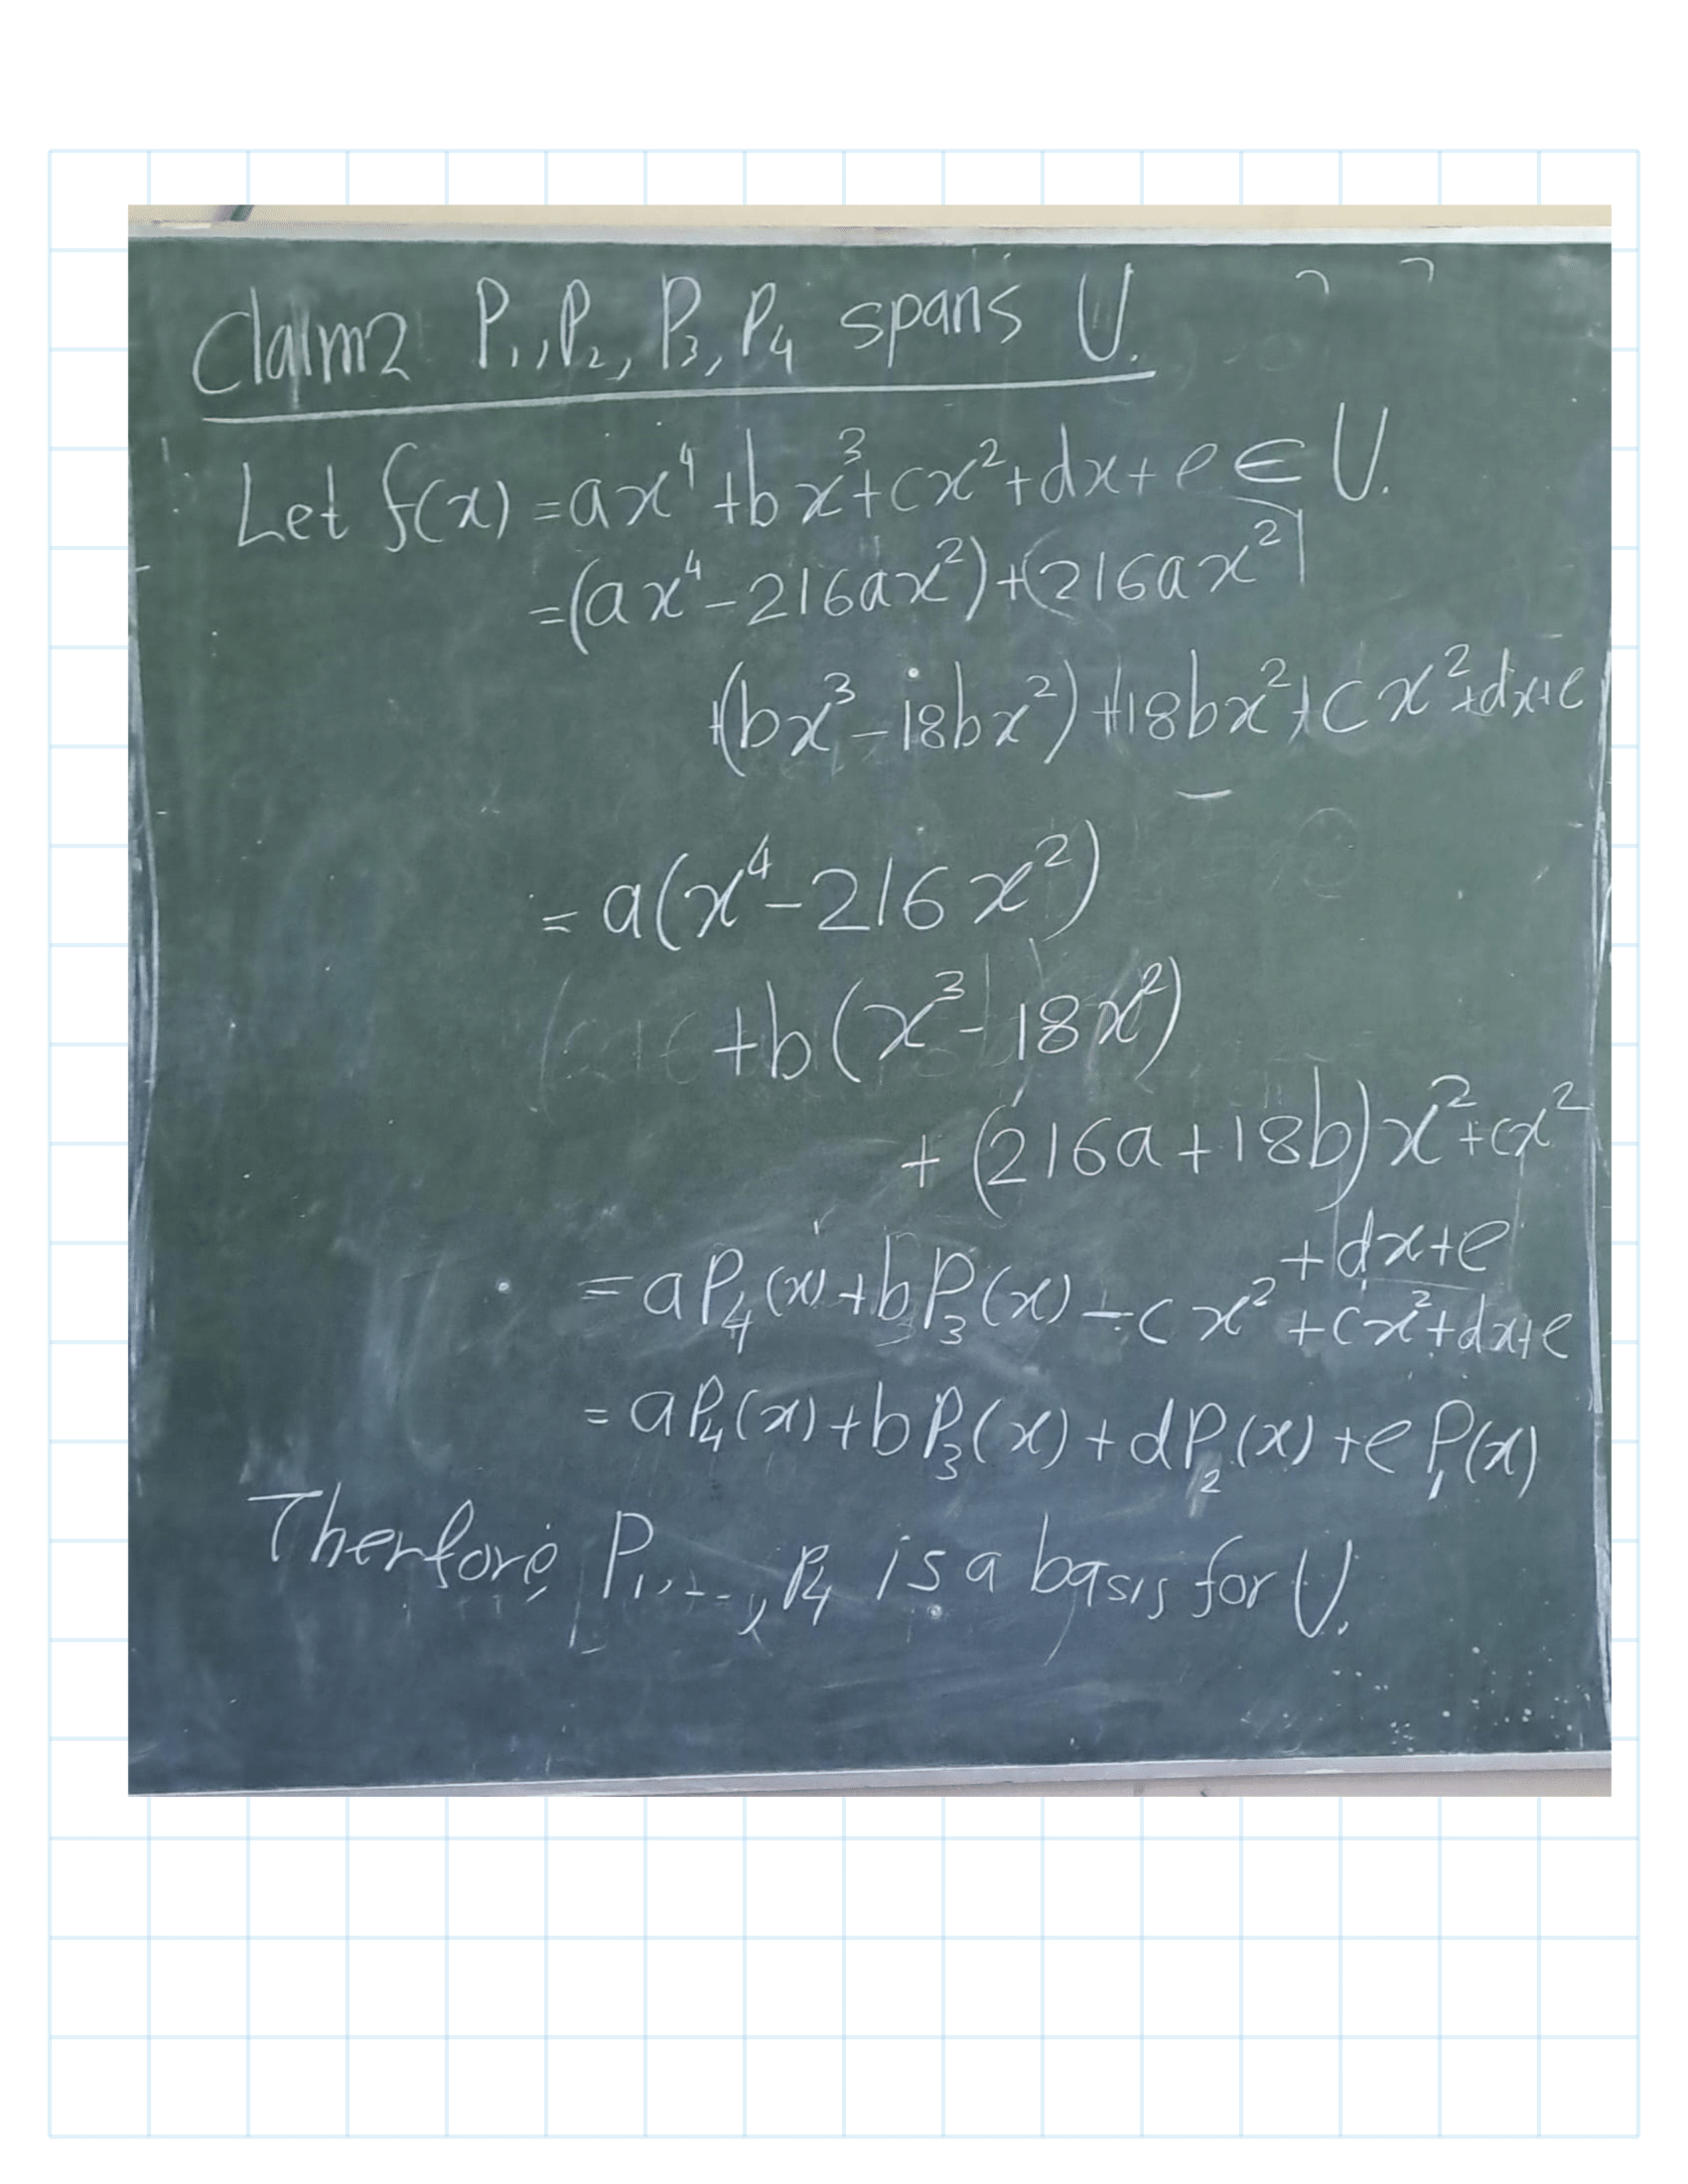 Claim2 P₁,,P₂, P₃, P₄ spans U.
Let f(x) = ax⁴ + bx³ + cx² + dx + e ∈ U.
= (ax⁴ - 216ax²) + (216ax²)
+ (bx³ - 18bx²) + 18bx² + cx² + dx + e
= a(x⁴ - 216x²)
+ b(x³ - 18x²)
+ (216a + 18b)x² + cx²
+ dx + e
= aP₄(x) + bP₃(x) - cx² + cx² + dx + e
= aP₄(x) + bP₃(x) + dP₂(x) + eP₁(x)
Therfore, P₁,..., P₄ is a basis for U.